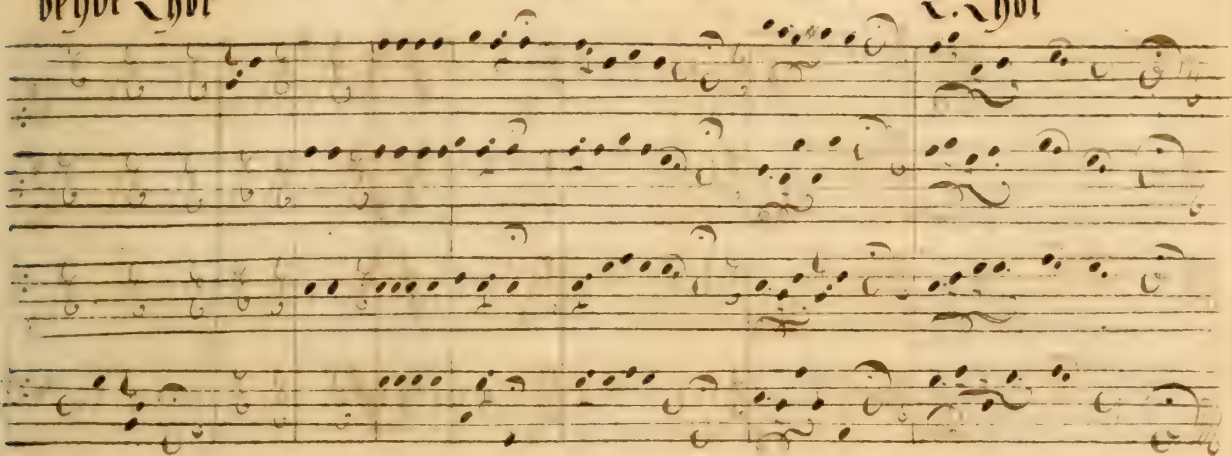 beyde Chor 2. Chor